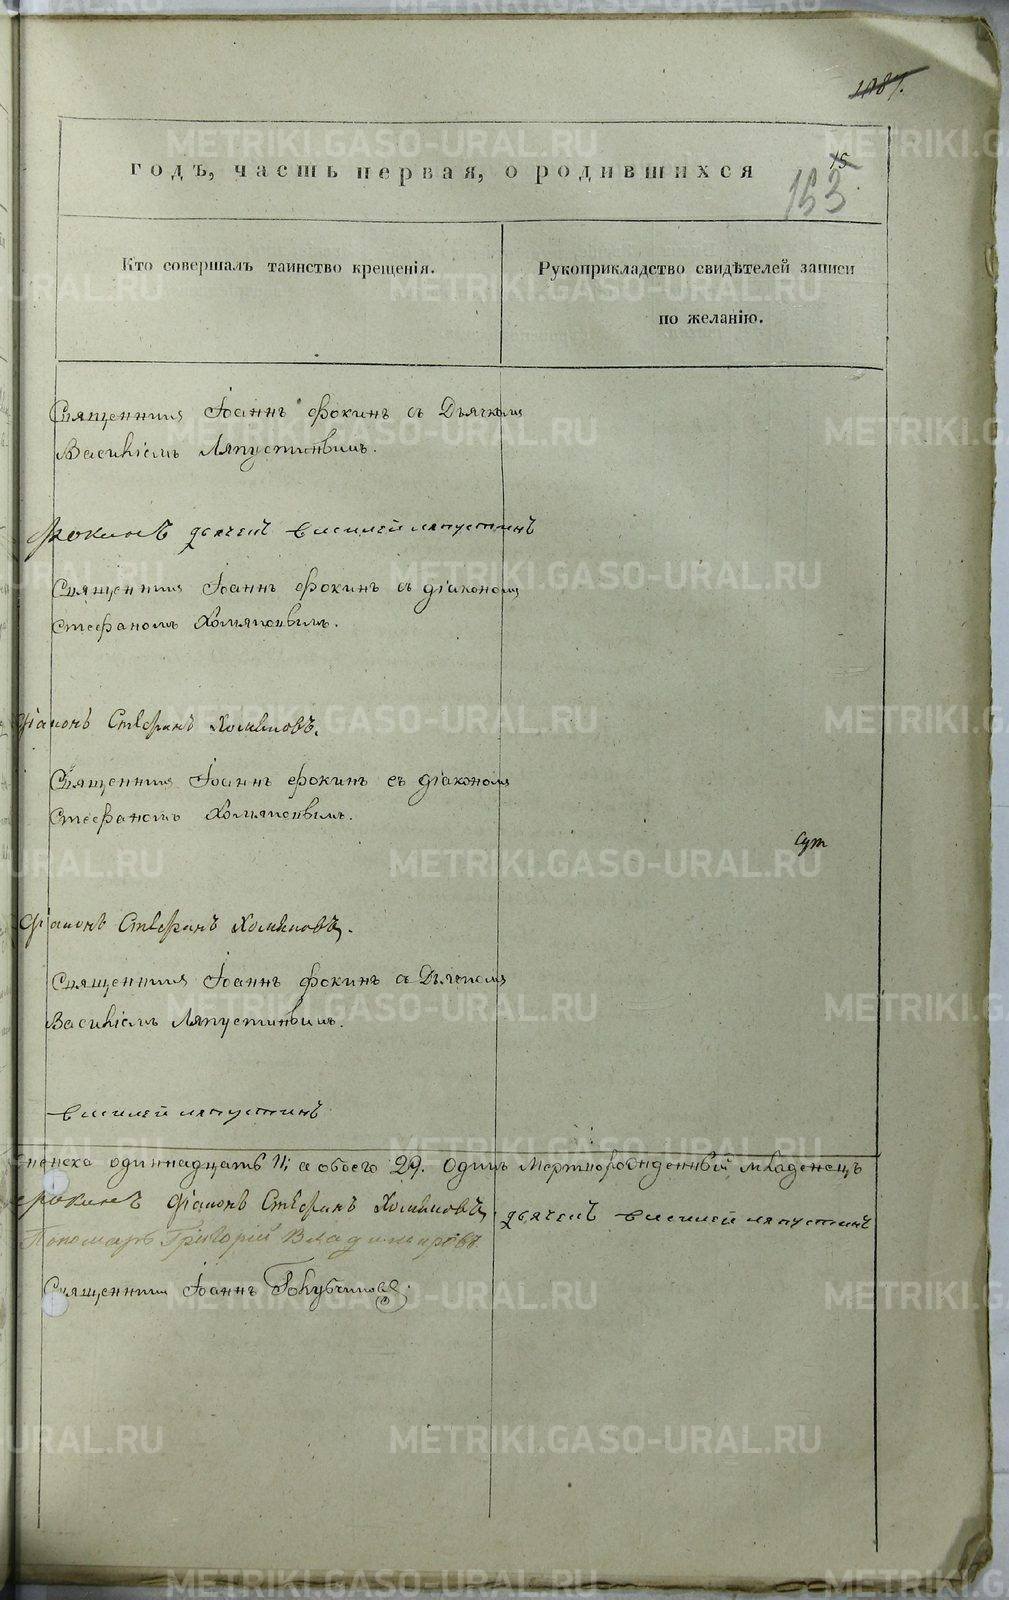 1187.
годъ, часть первая, о родившихся
15
163
Кто совершалъ таинство крещенія.
Рукоприкладство свидѣтелей записи
по желанію.
Священникъ Іоаннъ Фокинъ съ Дьячкомъ
Василіемъ Ляпустинымъ.
Фокинъ дьячекъ василей ляпустинъ
Священникъ Іоаннъ Фокинъ съ діакономъ
Стефаномъ Холмяковымъ.
діаконъ Стефанъ
Священникъ Іоаннъ Фокинъ съ діакономъ
Стефаномъ
діаконъ Стефанъ
Священникъ Іоаннъ Фокинъ съ Дьячкомъ
Василіемъ Ляпустинымъ.
василей ляпустинъ
женска одиннадцать 11; а обоего 29. Одинъ мертворожденный младенецъ
Фокинъ діаконъ Стефанъ дьячекъ василей ляпустинъ
Пономарь Григорій Владимировъ
Священникъ Іоаннъ
METRIKI.GASO-URAL.RU